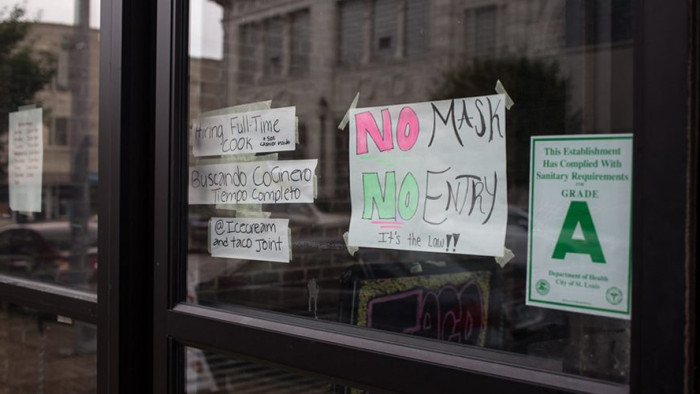 Hiring Full-Time
COOK * see
cashier inside
Buscando Cocinero
Tiempo Completo
@ Icecream
and taco Joint
NO MASK
NO ENTRY
It's the Law!!
This Establishment
Has Complied With
Sanitary Requirements
FOR
GRADE
A
Department of Health
City of St. Louis